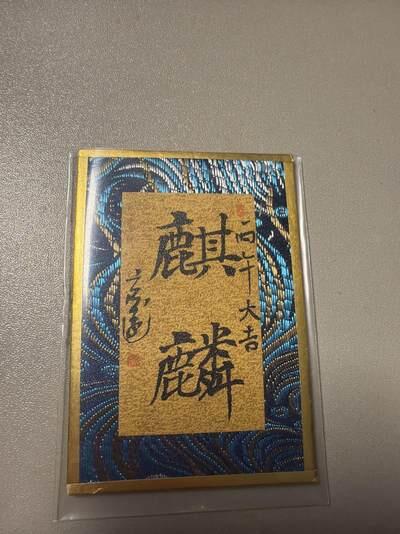 丙午大吉
麒麟